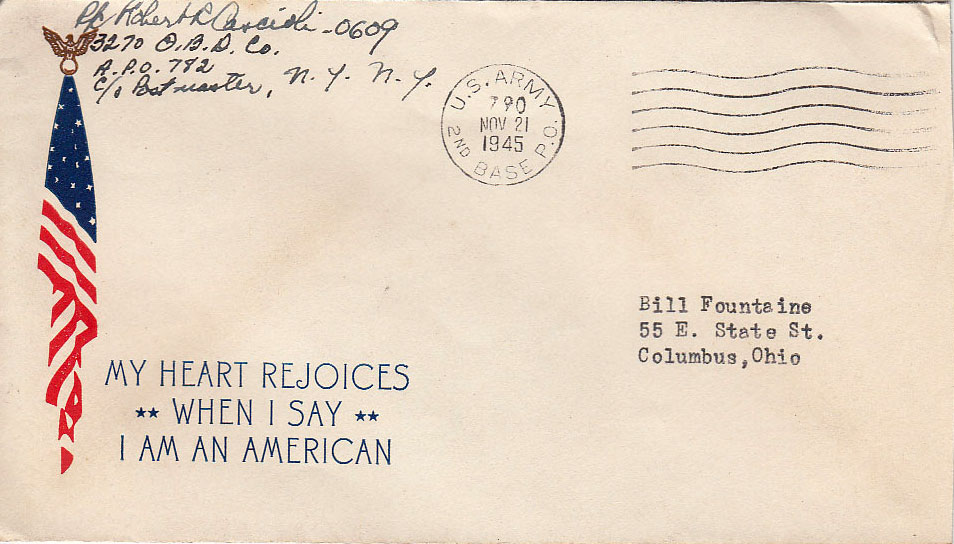 Pfc Robert L Cascioli -0609
3270 O.B.D. Co.
A.P.O. 782
c/o Postmaster, N.Y. N.Y.
U.S. ARMY
790
NOV 21
1945
2ND BASE P.O.
Bill Fountaine
55 E. State St.
Columbus,Ohio
MY HEART REJOICES
WHEN I SAY
I AM AN AMERICAN